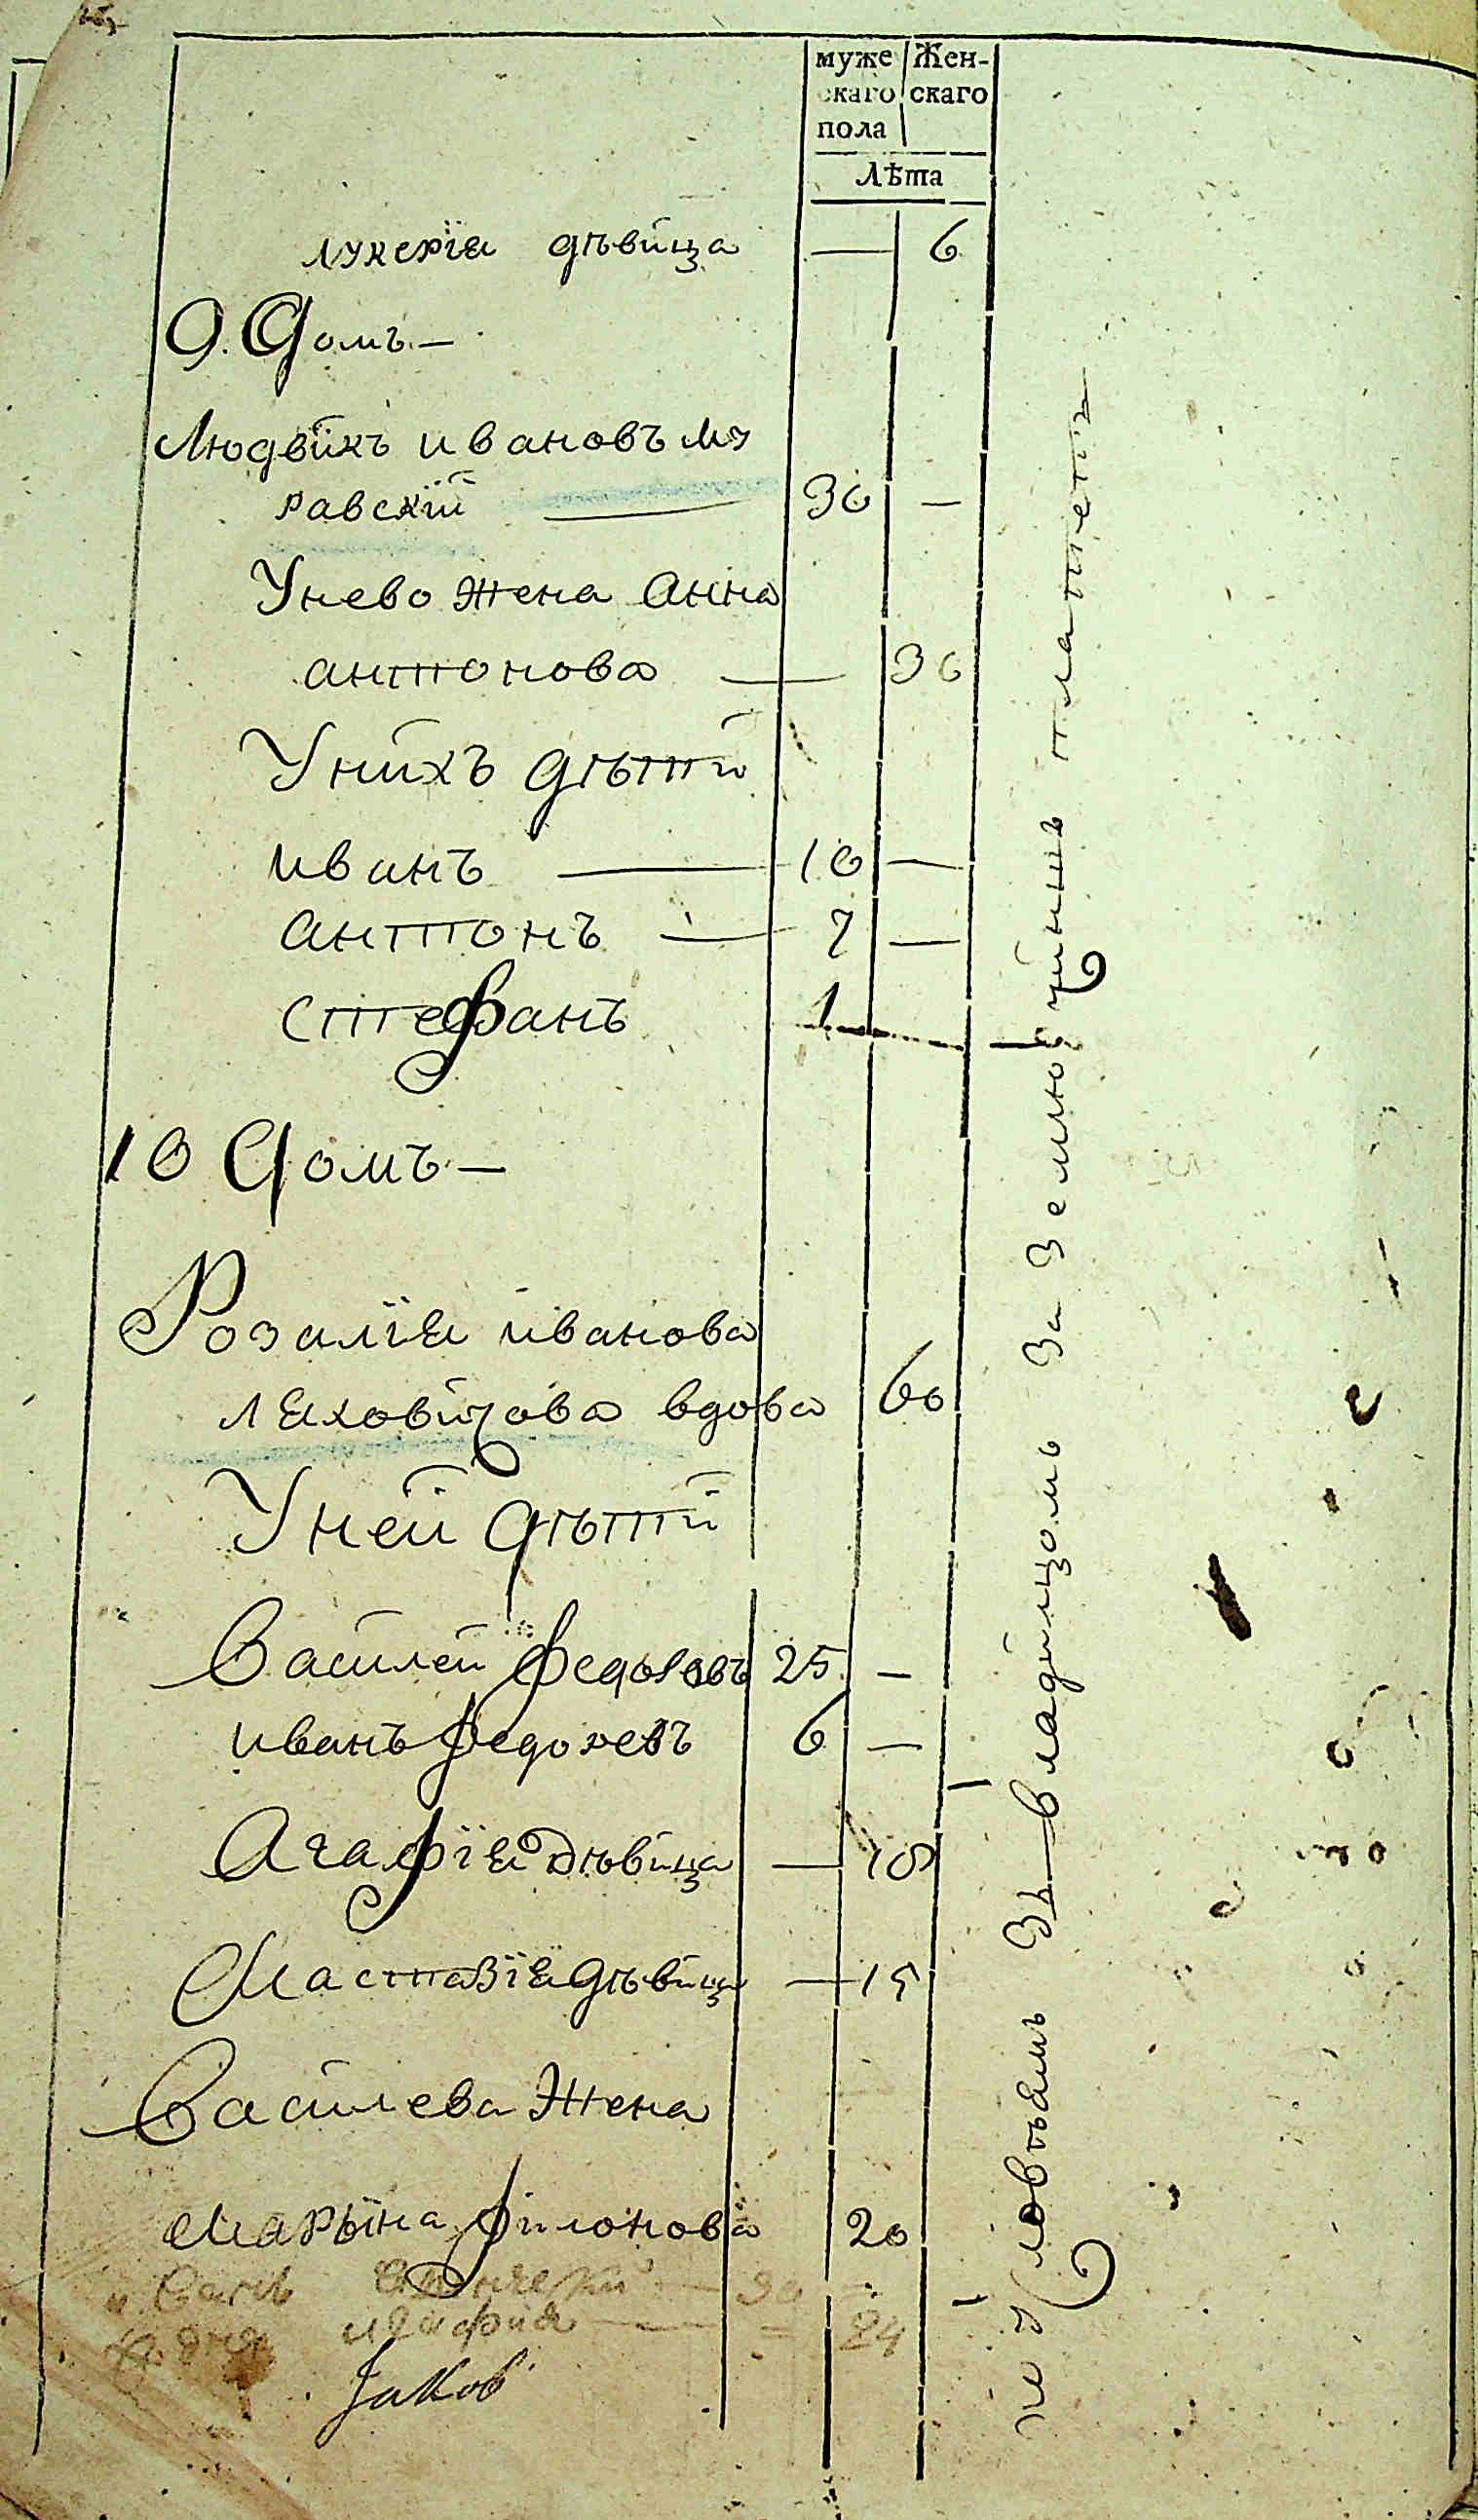 муже Жен-
скаго скаго
пола
Лѣта
лукерїя дѣвица — 6
9. Домъ —
Людвикъ ивановъ му
равскїй — 30 —
Унево жена анна
антонова — 30
Унихъ дѣти
иванъ — 10 —
антонъ — 7 —
стефанъ 1 —
10 Домъ —
Розалїя иванова
ляховичова вдова 60
Уней дѣти
Василей федоровъ 25 —
иванъ федоровъ 6 —
Агафїя дѣвица — 18
Настазїя дѣвица — 15
Василева жена
Марына филонова 20
24
Jakob
по условѣямъ зъ владѣлцомъ за землю чиншъ платетъ